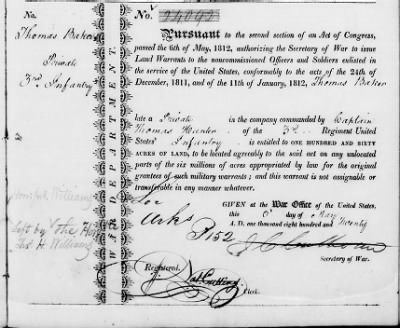 No.
Thomas Baker
Private
3rd Infantry
WAR DEPARTMENT
No. 24092
Pursuant to the second section of an Act of Congress,
passed the 6th of May, 1812, authorizing the Secretary of War to issue
Land Warrants to the noncommissioned Officers and Soldiers enlisted in
the service of the United States, conformably to the acts of the 24th of
December, 1811, and of the 11th of January, 1812, Thomas Baker
late a Private in the company commanded by Captain
Thomas Hunter of the 3d Regiment United
States' Infantry is entitled to ONE HUNDRED AND SIXTY
ACRES OF LAND, to be located agreeably to the said act on any unlocated
parts of the six millions of acres appropriated by law for the original
grantees of such military warrants; and this warrant is not assignable or
transferable in any manner whatever.
GIVEN at the War Office of the United States,
this day of May
A. D. one thousand eight hundred and Twenty
Arks
P 152
J C Calhoun
Secretary of War.
Williams
Left by
H. Williams
Registered.
Cutting
Clk